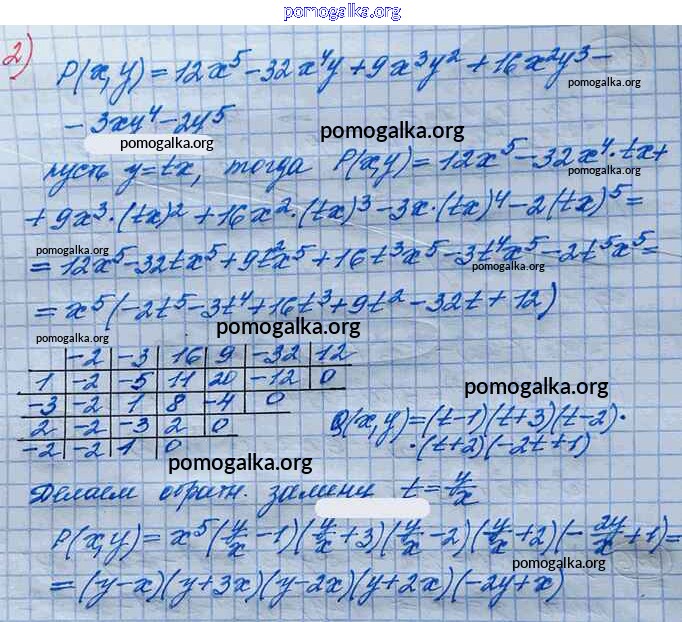 pomogalka.org
2)
P(x,y) = 12x⁵ - 32x⁴y + 9x³y² + 16x²y³ -
pomogalka.org
- 3xy⁴ - 2y⁵
pomogalka.org
pomogalka.org
пусть y=tx, тогда P(x,y) = 12x⁵ - 32x⁴·tx+
pomogalka.org
+ 9x³·(tx)² + 16x²·(tx)³ - 3x·(tx)⁴ - 2(tx)⁵ =
pomogalka.org
= 12x⁵ - 32tx⁵ + 9t²x⁵ + 16t³x⁵ - 3t⁴x⁵ - 2t⁵x⁵ =
pomogalka.org
= x⁵(-2t⁵ - 3t⁴ + 16t³ + 9t² - 32t + 12)
pomogalka.org
pomogalka.org
-2 -3 16 9 -32 12
1 -2 -5 11 20 -12 0
-3 -2 1 8 -4 0
2 -2 -3 2 0
-2 -2 1 0
pomogalka.org
Q(x,y) = (t-1)(t+3)(t-2)·
·(t+2)(-2t+1)
pomogalka.org
Делаем обратн. замену t = y/x
P(x,y) = x⁵(y/x - 1)(y/x + 3)(y/x - 2)(y/x + 2)(- 2y/x + 1) =
pomogalka.org
= (y-x)(y+3x)(y-2x)(y+2x)(-2y+x)